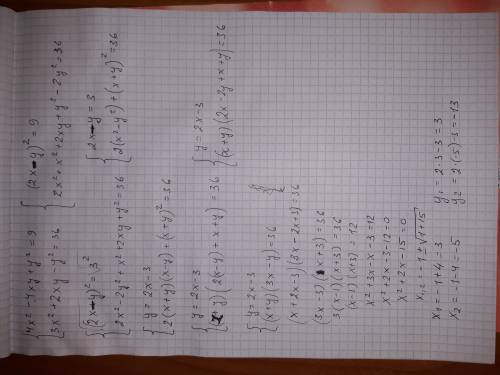 { 4x² - 4xy + y² = 9
{ 3x² + 2xy - y² = 36
{ (2x-y)² = 9
{ 2x² + x² + 2xy + y² - 2y² = 36
{ (2x-y)² = 3²
{ 2x² - 2y² + x² + 2xy + y² = 36
{ 2x - y = 3
{ 2(x² - y²) + (x+y)² = 36
{ y = 2x - 3
{ 2(x+y)(x-y) + (x+y)² = 36
{ y = 2x - 3
{ (x+y)(2(x-y) + x+y) = 36
{ y = 2x - 3
{ (x+y)(2x - 2y + x + y) = 36
{ y = 2x - 3
{ (x+y)(3x - y) = 36
(x + 2x - 3)(3x - 2x + 3) = 36
(3x - 3)(x + 3) = 36
3(x-1)(x+3) = 36
(x-1)(x+3) = 12
x² + 3x - x - 3 = 12
x² + 2x - 3 - 12 = 0
x² + 2x - 15 = 0
x₁,₂ = -1 ± √1+15
x₁ = -1 + 4 = 3
x₂ = -1 - 4 = -5
y₁ = 2·3 - 3 = 3
y₂ = 2·(-5) - 3 = -13